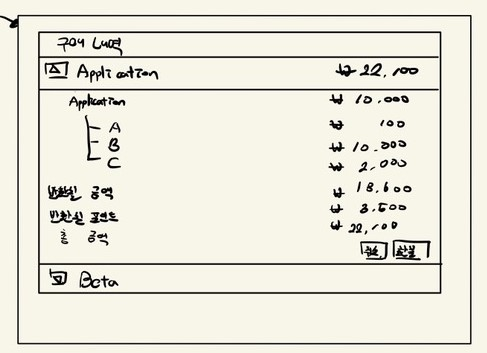 구매 내역
Application ₩ 22,100
Application ₩ 10.000
A ₩ 100
B ₩ 10.000
C ₩ 2,000
반환될 금액 ₩ 18,600
반환될 포인트 ₩ 3,500
총 금액 ₩ 22,100
취소 환불
Beta